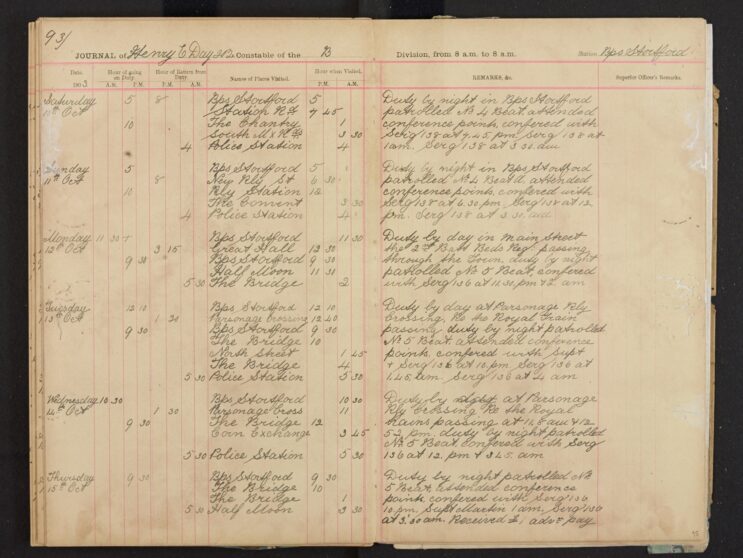 93/
JOURNAL of Henry E Day Constable of the B Division, from 8 a.m. to 8 a.m. Station Bps Stortford
Date. Hour of going on Duty. Hour of Return from Duty. Names of Places Visited. Hour when Visited. REMARKS, &c. Superior Officer's Remarks.
1903 A.M. P.M. P.M. A.M. P.M. A.M.
Saturday 5 8 Bps Stortford 5 Duty by night in Bps Stortford
10th Oct Station Rd 7 45 patrolled No 4 Beat attended
10 The Chantry 1 conference points, confered with
South Mx 3 30 Serg 138 at 7.45 pm. Serg 138 at
4 Police Station 4 1am. Serg 138 at 3.30 am
Sunday 5 Bps Stortford 5 Duty by night in Bps Stortford
11th Oct 8 New Rly St 6 30 patrolled No 4 Beat attended
10 Rly Station 12 conference points, confered with
The Convent 3 30 Serg 138 at 6.30 pm. Serg 138 at 12.
4 Police Station 4 pm. Serg 138 at 3.30. am
Monday 11 30 Bps Stortford 11 30 Duty by day in Main Street
12th Oct 3 15 Great Hall 12 30 the 2nd Batt Beds Reg passing
9 30 Bps Stortford 9 30 through the Town, duty by night
Half Moon 11 30 patrolled No 5 Beat, confered
5 30 The Bridge 2 with Serg 136 at 11.30 pm & 2 am
Tuesday 12 10 Bps Stortford 12 10 Duty by day at Parsonage Rly
13th Oct 1 30 Parsonage Crossing 12 40 Crossing Re the Royal Train
9 30 Bps Stortford 9 30 passing duty by night patrolled
The Bridge 10 No 5 Beat attended conference
North Street 1 45 points, confered with Supt
The Bridge 4 & Serg 136 at 10 pm, Serg 136 at
5 30 Police Station 5 30 1.45 am. Serg 136 at 4 am
Wednesday 10 30 Bps Stortford 10 30 Duty by night at Parsonage
14th Oct 1 30 Parsonage Cross 11 Rly Crossing Re the Royal
9 30 The Bridge 12 trains passing at 11.8 am & 12-
Corn Exchange 3 45 52 pm, duty by night patrolled
No 5 Beat confered with Serg
5 30 Police Station 5 30 136 at 12. pm & 3.45 am
Thursday 9 30 Bps Stortford 9 30 Duty by night patrolled No
15th Oct The Bridge 10 5 Beat, attended conference
The Bridge 1 points confered with Serg 136
5 30 Half Moon 3 30 10 pm, Supt Martin 1 am, Serg 136
at 3.30 am. Received £1 advce pay
95